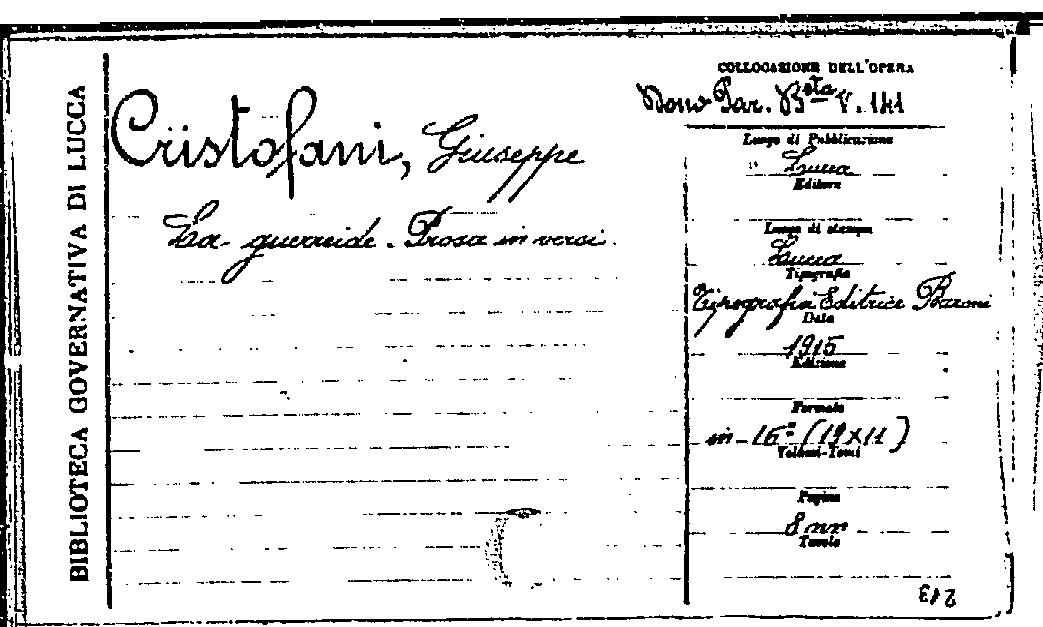 BIBLIOTECA GOVERNATIVA DI LUCCA
Cristofani, Giuseppe
La guerreide. Prosa in versi.
COLLOCAZIONE DELL'OPERA
Dono Bar. Bsta V. 141
Luogo di Pubblicazione
Lucca
Editore
Luogo di stampa
Lucca
Tipografia
Tipografia Editrice Baroni
Data
1915
Edizione
Formato
in-16º (19x11)
Volumi-Tomi
Pagine
8 nn
Tavole
213